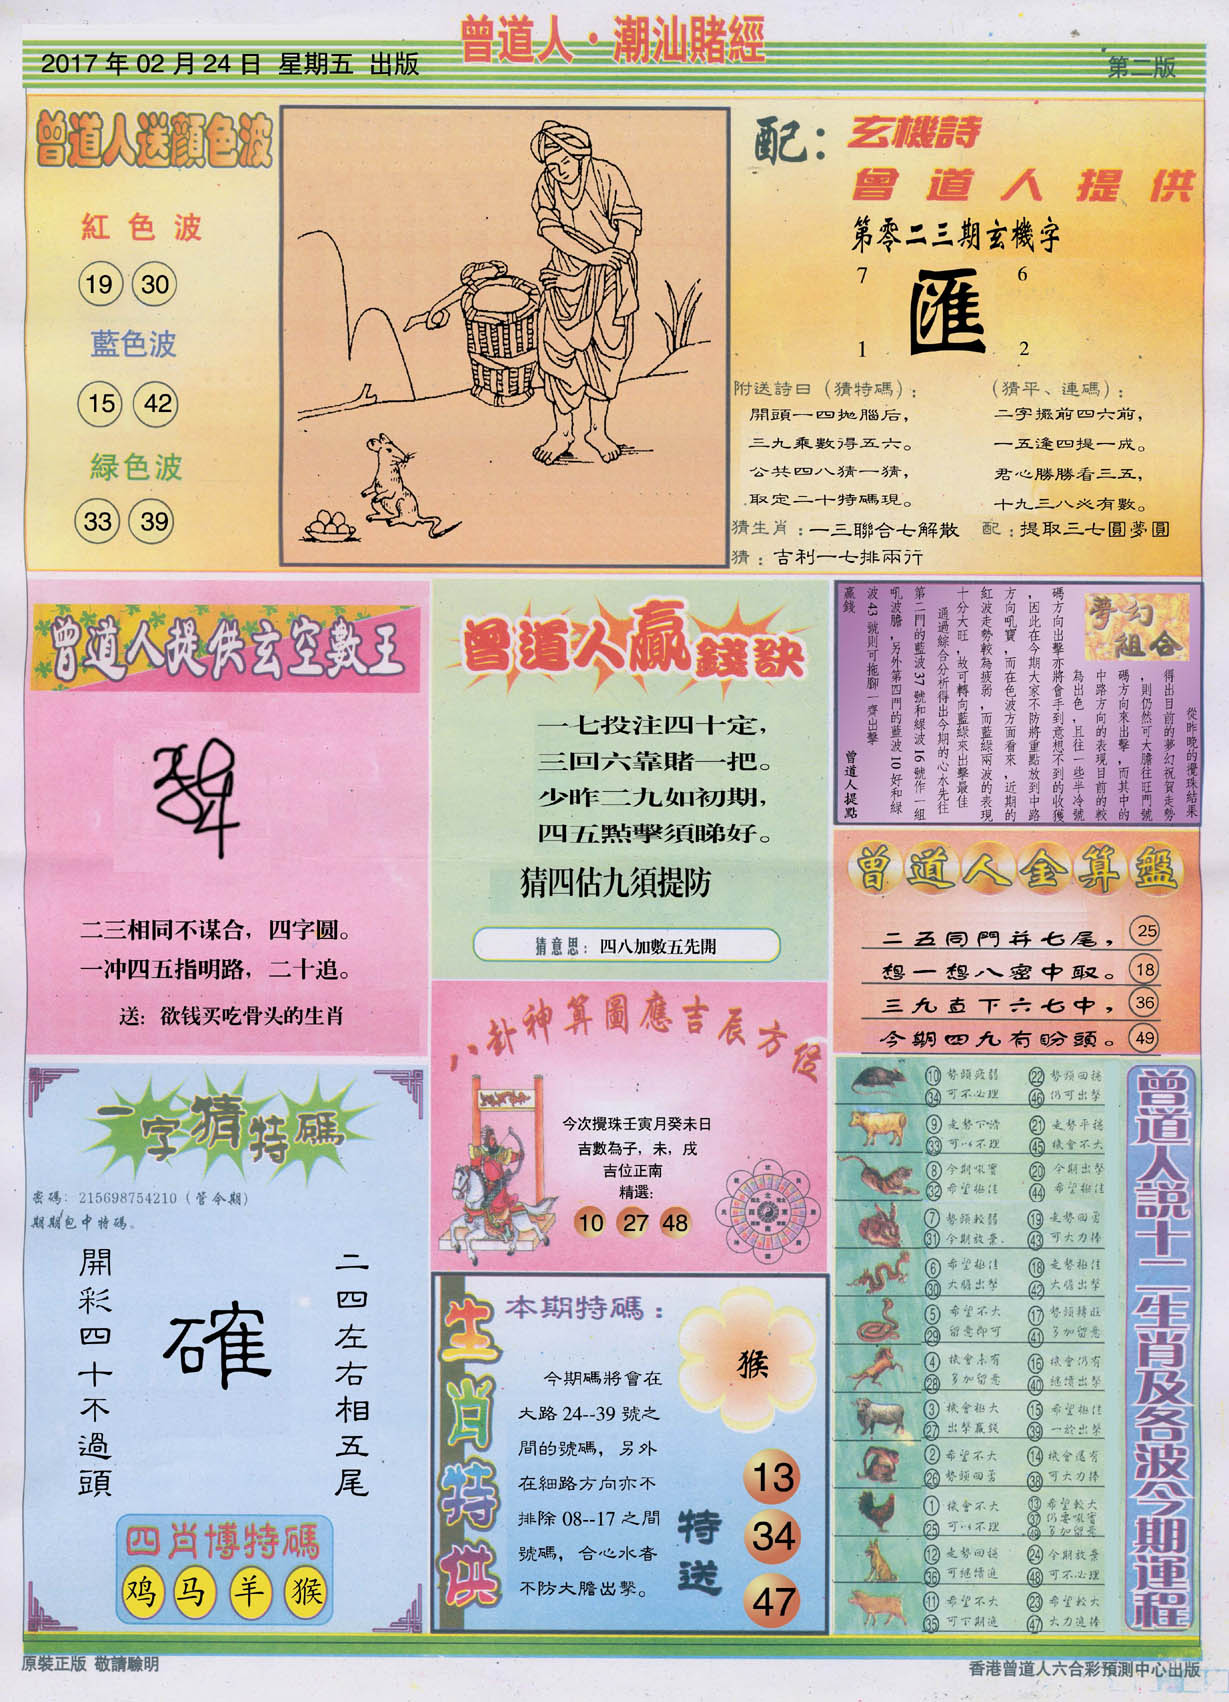 曾道人·潮汕賭經
2017 年 02 月 24 日 星期五 出版
第二版
曾道人送顏色波
紅色波
19 30
藍色波
15 42
緑色波
33 39
配：
玄機詩
曾道人提供
第零二三期玄機字
7 6
匯
1 2
附送詩日（猜特碼）：
開頭一四拋腦后，
三九乘數得五六。
公共四八猜一猜，
取定二十特碼現。
（猜平、連碼）：
二字攤前四六前，
一五逢四提一成。
君心勝勝看三五，
十九三八必有數。
猜生肖：一三聯合七解散
配：提取三七圓夢圓
猜：吉利一七排兩行
曾道人提供玄空數王
二三相同不谋合，四字圆。
一冲四五指明路，二十追。
送：欲钱买吃骨头的生肖
曾道人贏錢訣
一七投注四十定，
三回六靠賭一把。
少昨二九如初期，
四五點擊須睇好。
猜四估九須提防
猜意思：四八加數五先開
夢幻
組合
從昨晚的攪珠結果
得出目前的夢幻祝賀走勢
，則仍然可大膽往旺門號
碼方向來出擊，而其中的
中路方向的表現目前的較
為出色，且往一些半冷號
碼方向出擊亦將會手到意想不到的收獲
，因此在今期大家不防將重點放到中路
方向吼寶，而在色波方面看來，近期的
紅波走勢較為疲弱，而藍綠兩波的表現
十分大旺，故可轉向藍綠來出擊最佳
通過綜合分析得出今期的心水先往
第二門的藍波37號和綠波16號作一組
吼波膽，另外第四門的藍波10好和綠
波43號則可拖腳一齊出擊
贏錢
曾道人提點
曾道人金算盤
二五同門并七尾， 25
想一想八密中取。 18
三九直下六七中， 36
今期四九有盼頭。 49
八卦神算圖應吉辰方位
今次攪珠壬寅月癸未日
吉數為子，未，戌
吉位正南
精選：
10 27 48
一字猜特碼
密碼：215698754210（管令期）
期期包中特碼。
開彩四十不過頭
確
二四左右相五尾
四肖博特碼
鸡 马 羊 猴
生肖特供
本期特碼：
猴
今期碼將會在
大路 24--39 號之
間的號碼，另外
在細路方向亦不
排除 08--17 之間
號碼，合心水者
不防大膽出擊。
特送
13
34
47
曾道人説十二生肖及各波今期運程
10 勢頭疲弱 22 勢頭回穩
34 可不必理 46 仍可出擊
9 走勢下滑 21 走勢平穩
33 可以不理 45 機會不大
8 今期吼寶 20 今期出擊
32 希望極佳 44 希望極佳
7 勢頭較弱 19 走勢回勇
31 今期放棄 43 可大力捧
6 希望極佳 18 走勢極佳
30 大膽出擊 42 大膽出擊
5 希望不大 17 勢頭轉旺
29 留意即可 41 多加留意
4 機會未有 16 機會仍有
28 多加留意 40 繼續出擊
3 機會極大 15 希望極佳
27 出擊贏錢 39 一於出擊
2 希望不大 14 機會還有
26 勢頭回勇 38 可大力捧
1 機會不大 13 希望較大
37 仍要吼寶
25 可以不理 49 多加留意
12 走勢回穩 24 今期放棄
36 可繼續追 48 可不必理
11 希望不大 23 希望較大
35 可下期追 47 大力追捧
原裝正版 敬請驗明
香港曾道人六合彩預測中心出版